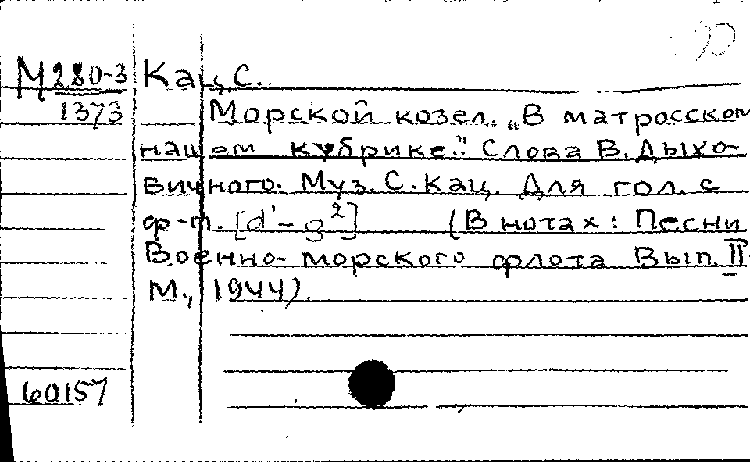 М280-3 Кац, С.
1373 Морской козел. „В матросском
нашем кубрике." Слова В. Дыхо-
вичного. Муз. С. Кац. Для гол. с
ф-п. [d¹ – g²] (В нотах: Песни
Военно-морского флота Вып. II
М., 1944)
60157